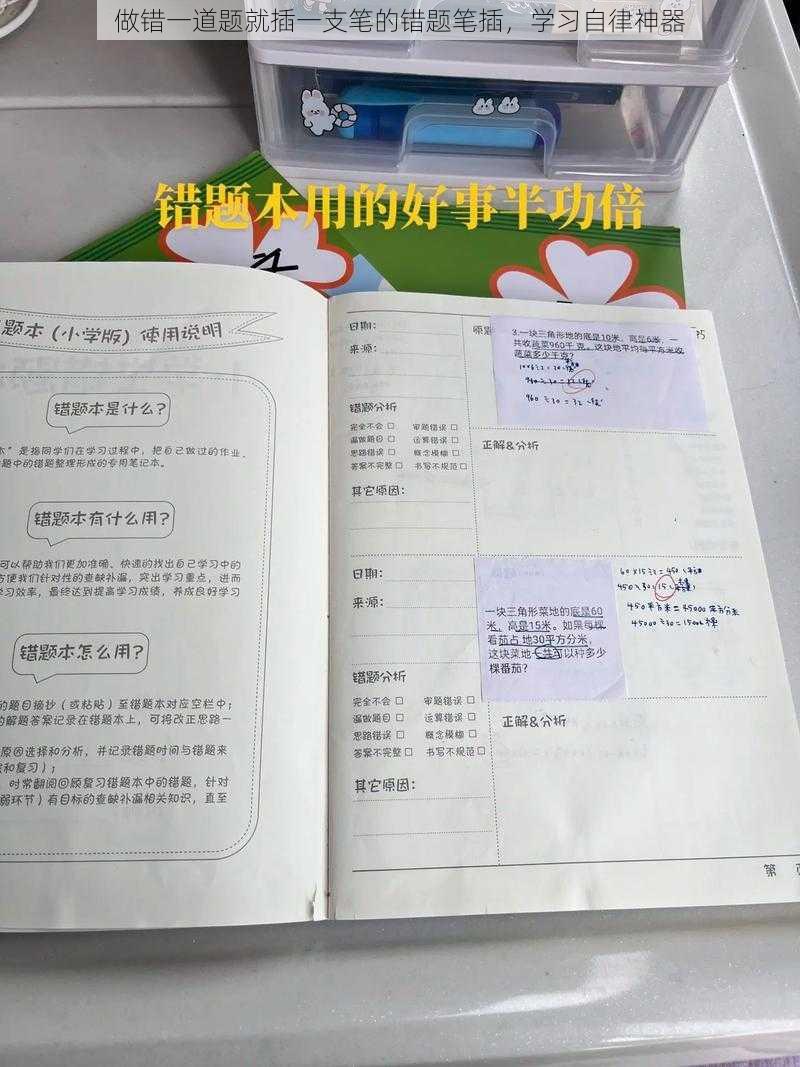 做错一道题就插一支笔的错题笔插，学习自律神器
错题本用的好事半功倍
题本（小学版）使用说明
错题本是什么？
本”是指同学们在学习过程中，把自己做过的作业、
题中的错题整理形成的专用笔记本。
错题本有什么用？
可以帮助我们更加准确、快速的找出自己学习中的
方便我们针对性的查缺补漏，突出学习重点，进而
学习效率，最终达到提高学习成绩，养成良好学习
错题本怎么用？
的题目摘抄（或粘贴）至错题本对应空栏中；
的解题答案记录在错题本上，可将改正思路一
原因选择和分析，并记录错题时间与错题来
和复习）；
时常翻阅回顾复习错题本中的错题，针对
弱环节）有目标的查缺补漏相关知识，直至
日期：
来源：
错题分析
完全不会 □ 审题错误 □
漏做题目 □ 运算错误 □
思路错误 □ 概念模糊 □
答案不完整 □ 书写不规范 □
其它原因：
原题
P5
3.一块三角形地的底是10米，高是6米，一
共收蔬菜960千克。这块地平均每平方米收
蔬菜多少千克？
10×6÷2=30
960÷30=32
960÷30=32
正解&分析
日期：
来源：
错题分析
完全不会 □ 审题错误 □
漏做题目 □ 运算错误 □
思路错误 □ 概念模糊 □
答案不完整 □ 书写不规范 □
其它原因：
一块三角形菜地的底是60
米，高是15米。如果每棵
番茄占地30平方分米，
这块菜地一共可以种多少
棵番茄？
60×15÷2=450
450÷30=15
450平方米=45000平方分米
45000÷30=1500棵
正解&分析
第 页